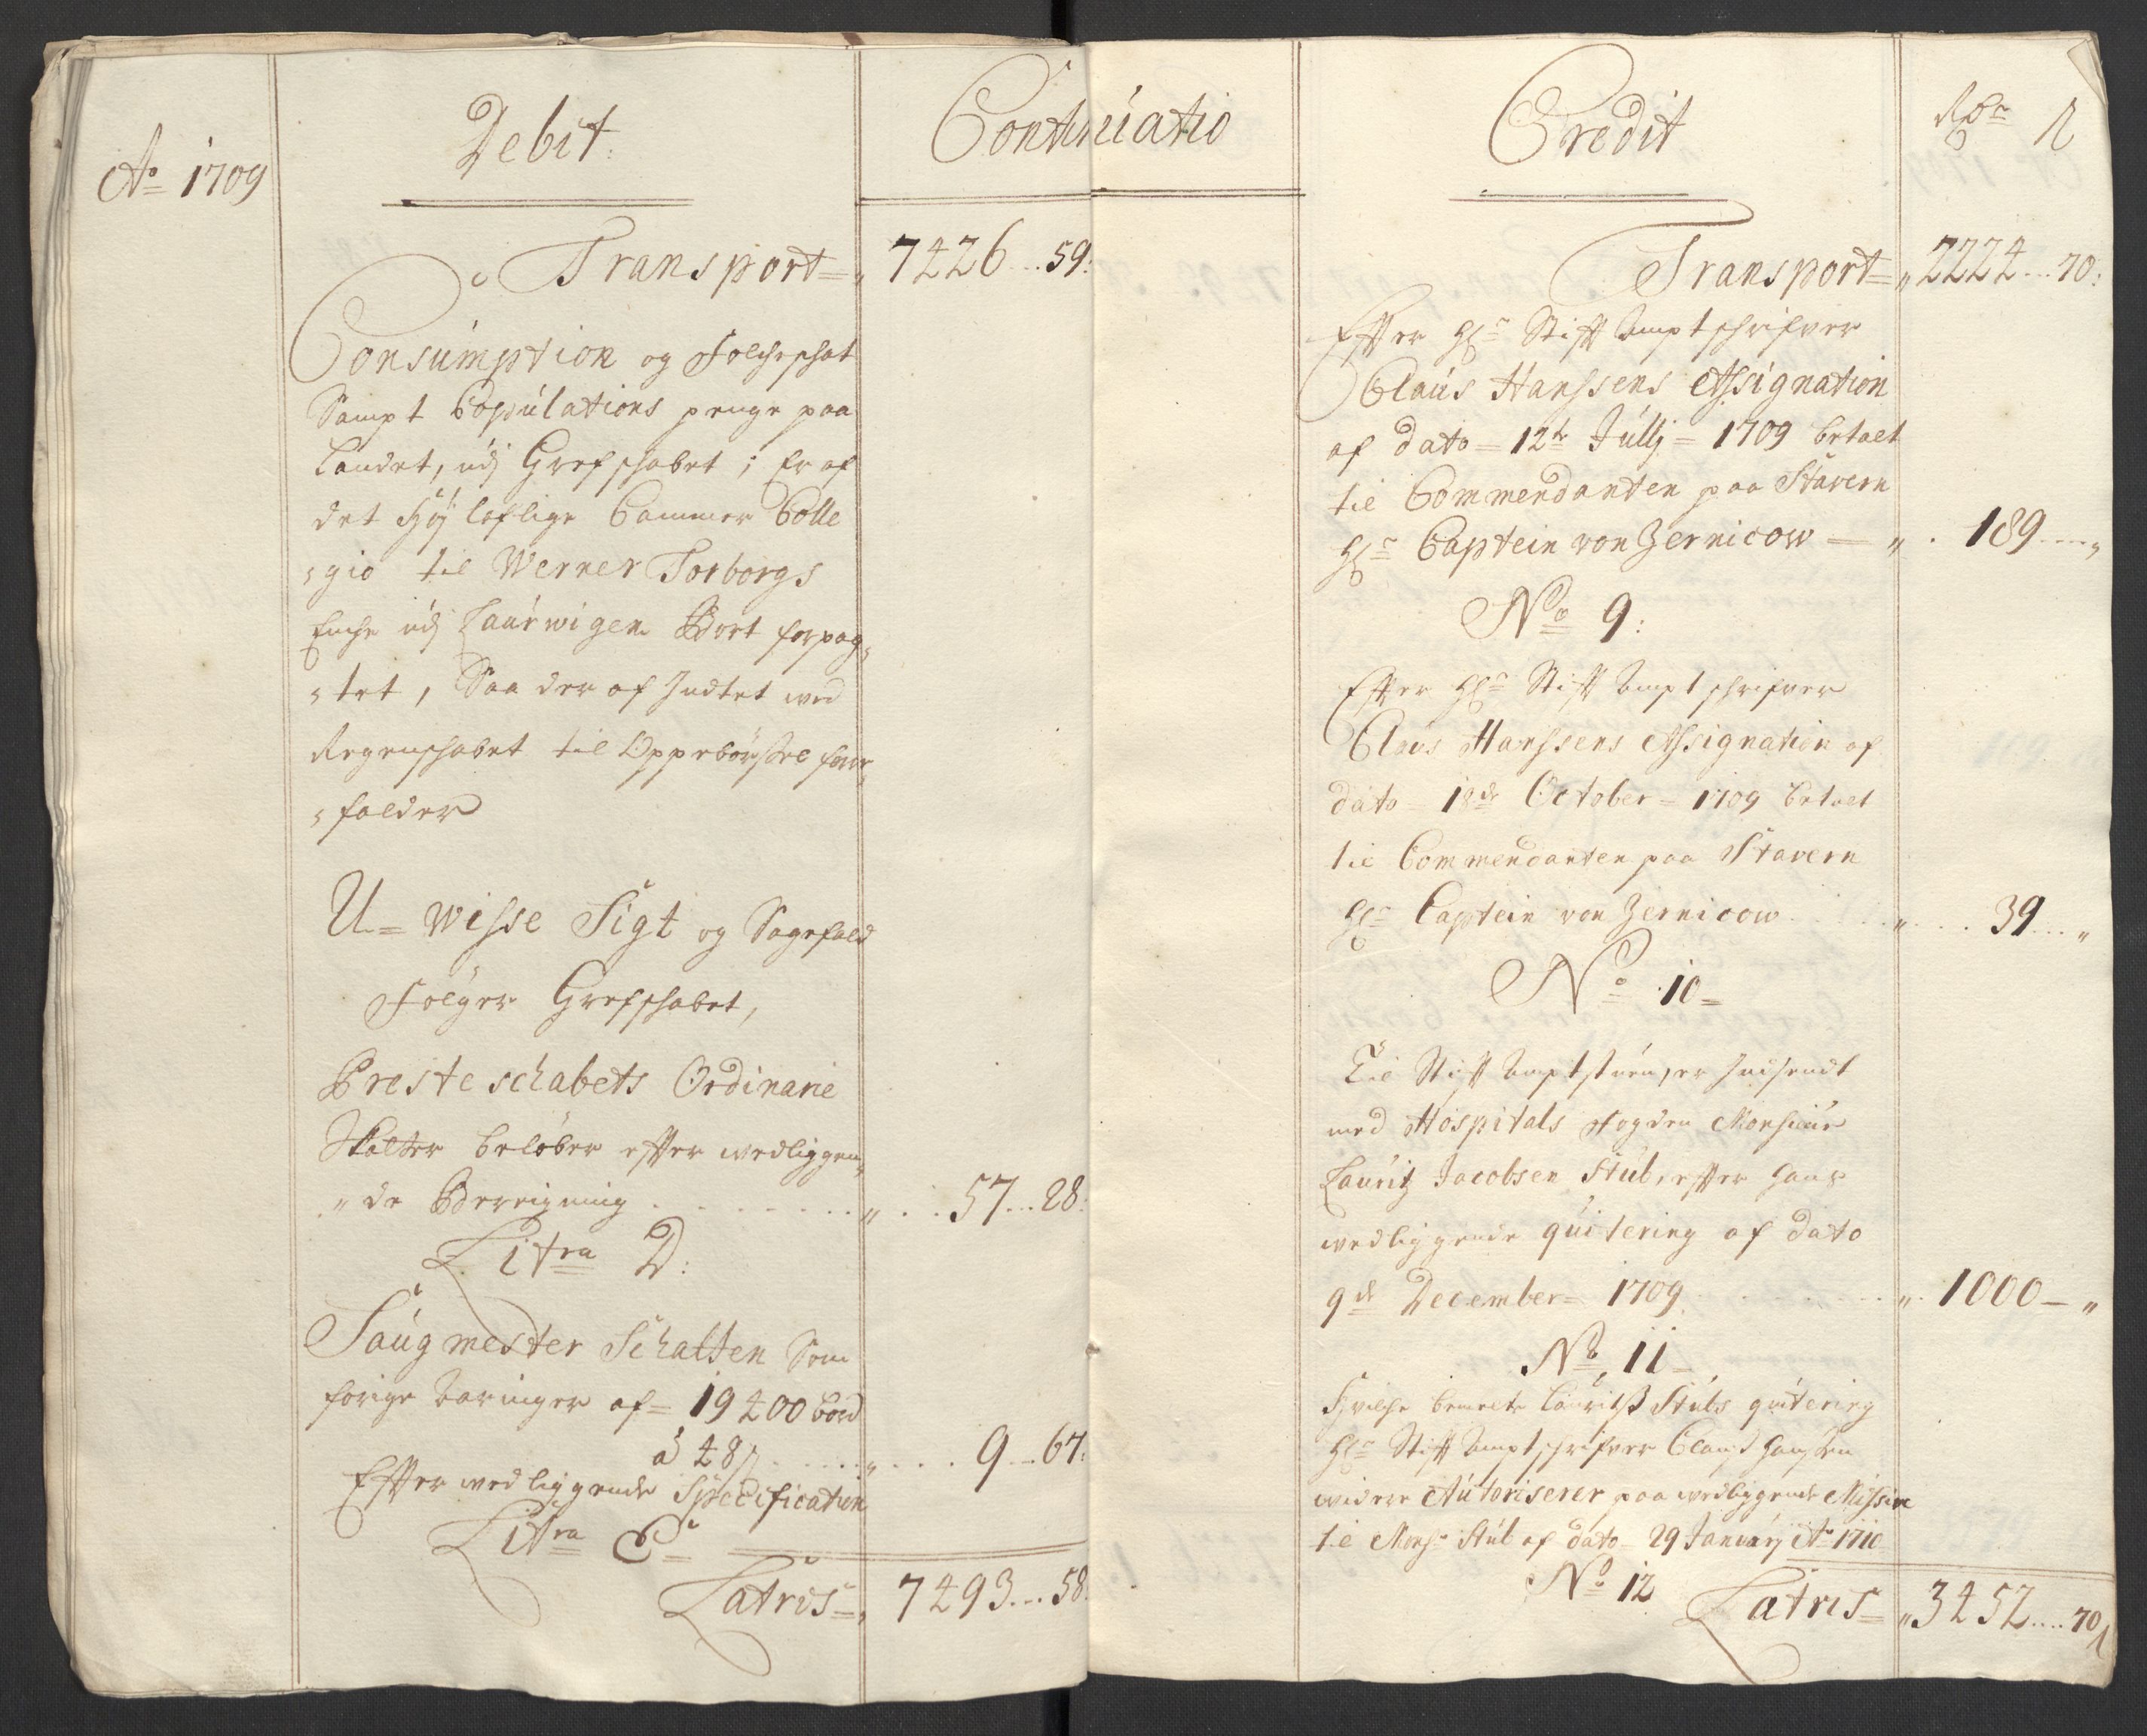 Ao 1709
Debit:
Continuatio
Transport = „ 7426 ... 59:
Consumption og Folcheschat
Sampt Copulations penge paa
Landet, udj Grefschabet; Er af
det Høj loflige Cammer Colle
„gio til Werner Torborgs
Enche udj Laurwigen Bort forpag„
„tet, Saa der af Indtet ved
Regenschabet til Oppebørssel for„
„falder
U= wisse Sigt og Sagefald
Følger Grefschabet,
Presteschabets Ordinarie
Skatter beløber efter wedliggen„
„de Beregning . . . . „ . . 57 ... 28:
Litra D:
Saugmester Schatten Som
forige Aaringer af = 19400 bord
à 48 s . . . . „ . . . 9 ... 67:
Effter wedliggende Specification
Litra E
Latris = „ 7493 ... 58
Credit
Rdr s
Transport = „ 2224 ... 70:
Effter Hr Stifft Ampt schrifver
Claus Hanssens Assignation
af dato = 12te Julij = 1709 betalt
til Commendanten paa Stavern
Hr Captein von Zernicow — „ . 189 .... „
No 9:
Effter Hr Stifft Ampt schrifver
Claus Hanssens Assignation af
dato = 18de October = 1709 betalt
til Commendanten paa Stavern
Hr Captein von Zernicow . . . „ . . . 39 ... „
No 10 =
Til Stifft Amptstuen, er Indsendt
med Hospitals Fogden Monsieur
Lauritz Jacobsen Stub, effter hans
wedliggende quitering af dato
9de December = 1709 . . . . „ . 1000 — „
No 11 =
Hvilche bemelte Lauritz Stubs quitering
Hr Stifft Amptschrifver Claus Hanssen
widere Autoriserer paa wedliggende Missive
til Monsr Stub af dato = 29 January Ao 1710
No 12
Latris = „ 3452 .... 70